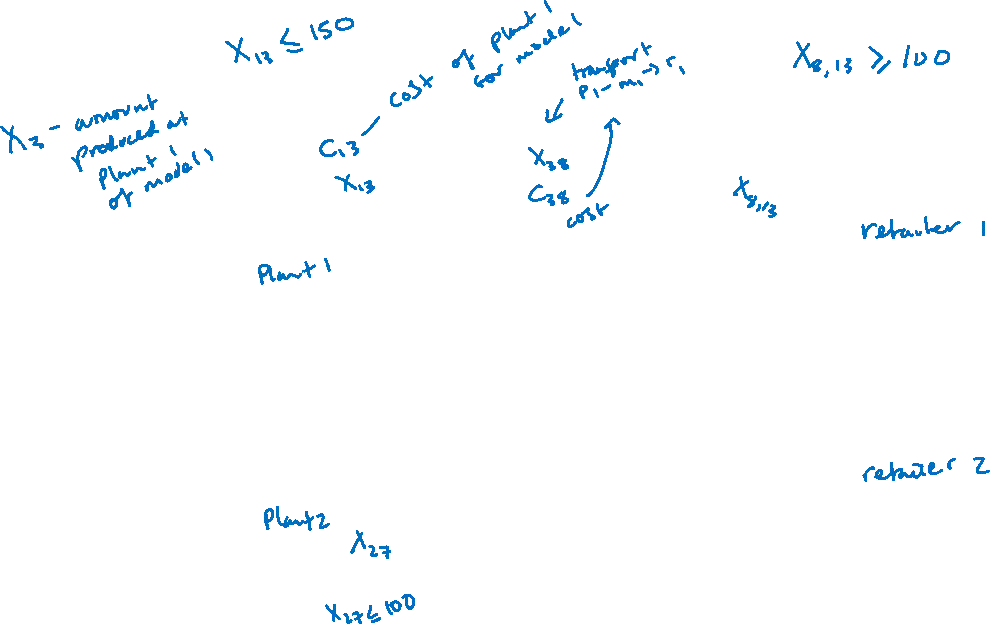 X₁₃ ≤ 150
X₃ - amount
produced at
plant 1
of model 1
C₁₃
X₁₃
cost of plant 1
for model 1
transport
P₁-m₁→r₁
X₃₈
C₃₈
cost
X₈,₁₃ ≥ 100
X₈,₁₃
retailer 1
Plant 1
retailer 2
Plant 2
X₂₇
X₂₇ ≤ 100